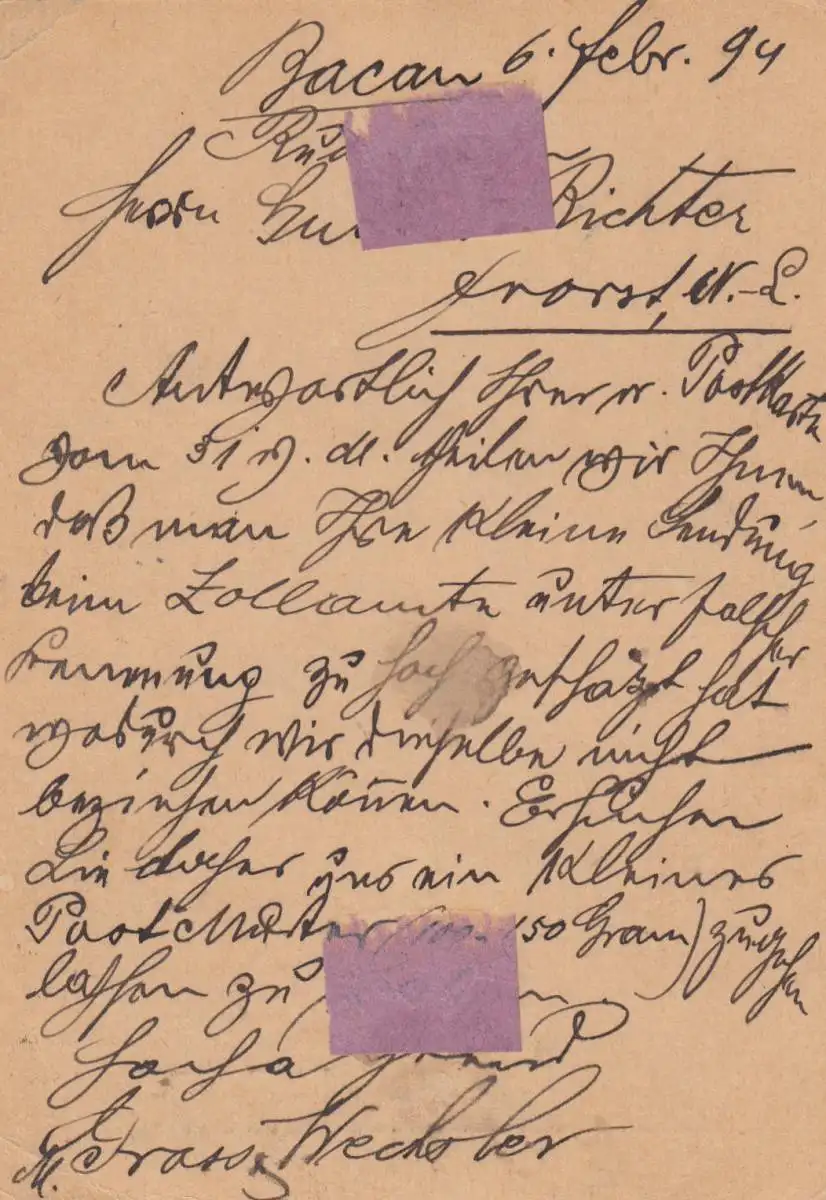 Bacau 6. Febr. 94
Herrn Richter
Forst, N.-L.
Antwortlich Ihrer w. Postkarte
vom 31 v. M. theilen wir Ihnen,
daß man Ihre kleine Sendung
beim Zollamte unter falscher
zu hoch geschäzt hat
wodurch wir dieselbe nicht
beziehen können. Ersuchen
Sie daher uns ein kleines
Post Muster 150 Gram) zugehen
lassen zu
M. Grass Wechsler